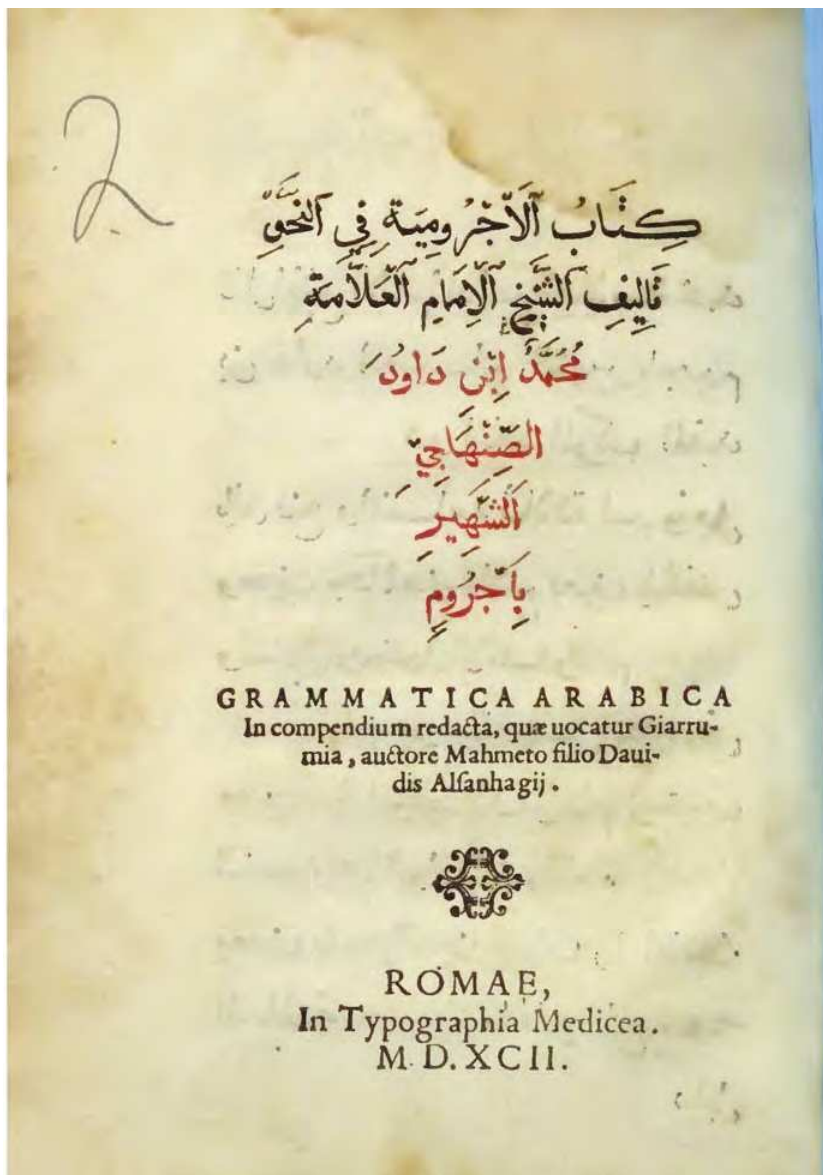 2
كِتَابُ ٱلْأَجْرُومِيَةِ فِي ٱلنَّحْوِ
تَالِيفِ ٱلشَّيْخِ ٱلْإِمَامِ ٱلْعَلَّامَةِ
مُحَمَّدُ اِبْنِ دَاوُدَ
الصِّنْهَاجِيِّ
ٱلشَّهِيرِ
بِآجَرُومِ
GRAMMATICA ARABICA
In compendium redacta, quæ uocatur Giarru-
mia, auctore Mahmeto filio Daui-
dis Alſanhagij.
ROMAE,
In Typographia Medicea.
M. D. XCII.